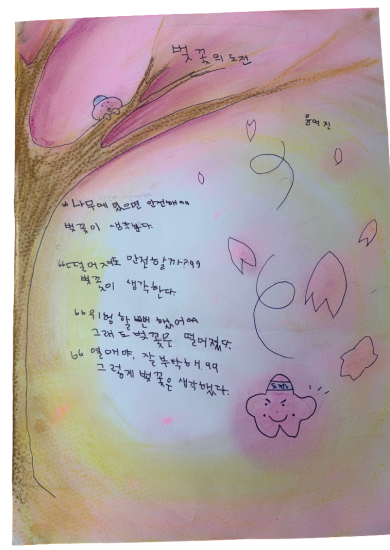 벚꽃의 도전
윤여진
"나무에 있으면 안전해"
벚꽃이 생각했다.
"떨어져도 안전할까?"
벚꽃이 생각한다.
"위험할뻔 했어"
그래도 벚꽃은 떨어졌다.
"열매야, 잘 부탁해"
그렇게 벚꽃은 생각했다.
도전